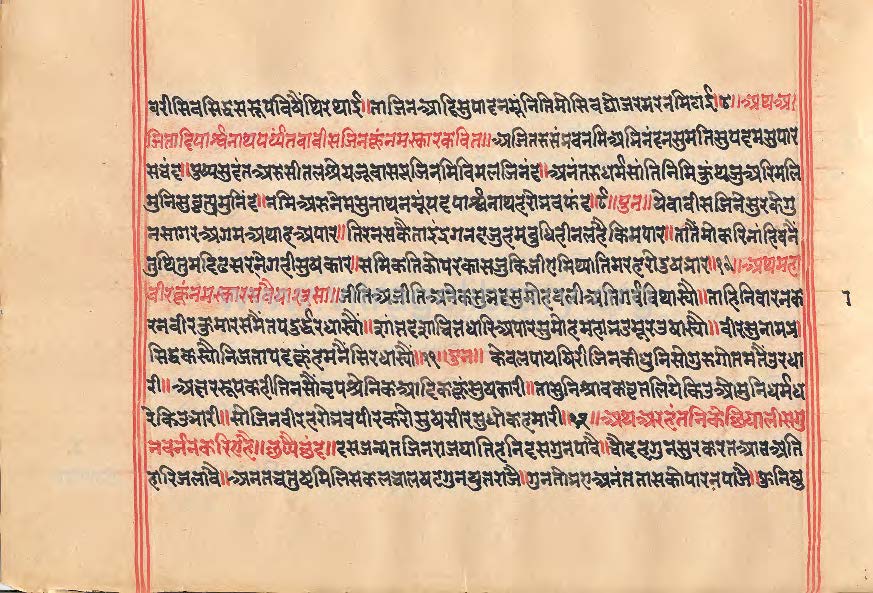 वरीसिवसिद्धसरूपविषैंथिरथाई॥ताजिनआदिसुपादनमूंनितिमोसिवद्योजरमरनमिटाई॥८॥अथअ
जितादिपार्श्वनाथपर्य्यंतवावीसजिनकूंनमस्कारकवित॥अजितरुसंभवनमिअभिनंदनसुमतिसुपदमसुपार
सचंद॥पुष्पसुदंतअरुसीतलश्रेयजूवासजजिनमिविमलजिनंद॥अनंतरुधर्मसांतिनिमिकुंथजुअरिमलि
मुनिसुव्रतसुमुनिंद॥नमिअरुनेमसुनाथनमूंपदपार्श्वनाथहरोभवफंद॥९॥पुन॥येवावीसजिनेसुरकेगु
नसागरअगमअथाहअपार॥तिरनसकैताइंदगनदजुहमबुधिहीनलहैकिमपार॥तातैंमोकरिनांहिवनैं
थुथितुमढिगसरनेगहीसुषकार॥समिकतिकोपरकासजुकिजीएमिथ्यातिमरहरोदुषभार॥१०॥अथमहा
वीरकूंनमस्कारसवैया२३सा॥जीतिअजीतिअनेकसुभटसुमोहवलीअतिगर्वविथास्यौ॥ताहिनिवारनक
रनवीरकुमारसमैंतपदुर्द्धरधास्यौ॥ग्यांनदग्यावितधारिअपारसुमोहमहाभटमूरउथास्यौ॥वीरसुनामप्र
सिद्धकस्यौनिजतापदकूंहमनैंसिरधास्यौं॥११॥पुन॥केवलपायषिरीजिनकीधुनिसोगुरुगोतमतैंउरधा
री॥अक्षररूपकरीतिनसौंनृपश्रेनिकआदिककूंसुषकारी॥तासुनिश्रावकवृतलियेकिउओमुनिधर्मध
रेकिउभारी॥सोजिनवीरहरोभवपीरकरोसुषसीरसुधोकहमारी॥१२॥अथअरहंतनिकेछियालीसगु
नवर्ननकरिएहै॥छप्पैछंद॥दसजन्मतजिनराजघातिहनिदसगुनपावै॥चौदहगुनसुरकरतआवअति
हारिजलावै॥अनतचतुष्टमिलिसकलछालषटगुनयुतराजै॥गुनतोप्रभुअनंततासकोपारनपाजै॥फुनिषु
१